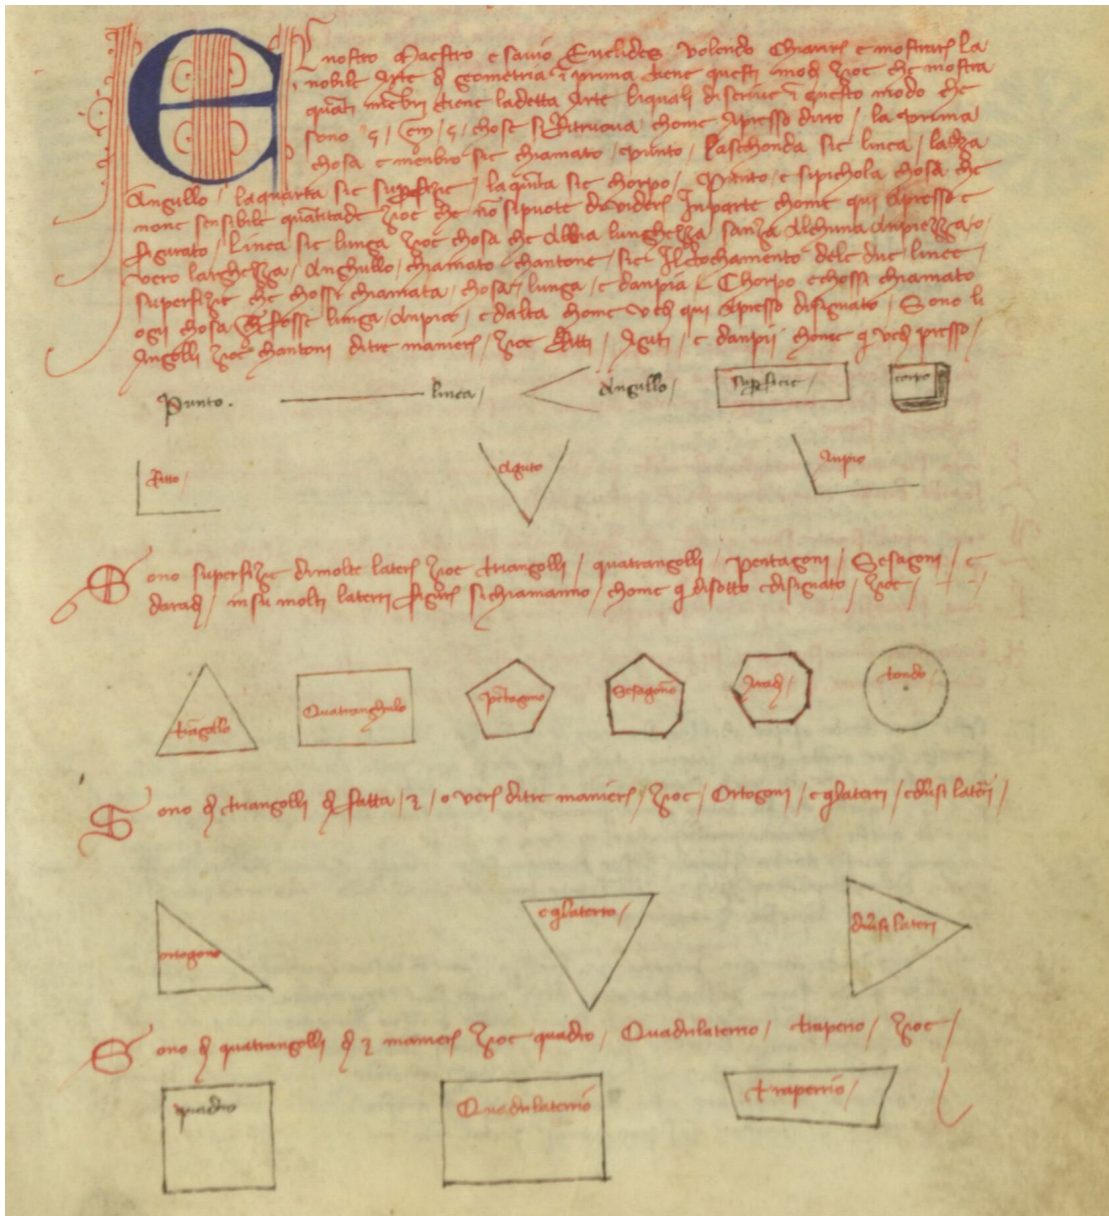 El nostro Maestro e savio Euclides volendo chiarire e mostrare la
nobile Arte di geometria in prima tiene questi modi zioe che mostra
quanti menbri tiene la detta Arte li quali discrive in questo modo che
sono 5 chose si Ritruova chome Apresso dirro / la prima
chosa e menbro sie chiamato / punto / la sechonda sie linea / la 3a
Angullo / la quarta sie superfizie / la quinta sie chorpo / Punto e si pichola chosa che
none sensibile quantitade zioe che non si puote dividere In parte chome qui apresso e
figurato / Linea sie lunga zioe chosa che Abbia lunghezza sanza Alchuna anpiezza / o
vero larghezza / Anghullo / chiamato chantone / sie Il tochamento dele due linee /
superfizie che chossi chiamata / chosa / lunga / e danpia / Chorpo e chossi chiamato
ogni chosa che fosse lunga / anpia / e dalta chome vedi qui apresso disignato / Sono li
Angolli zioe chantoni di tre maniere / zioe Ritti / Aguti / e danpii chome qui vedi presso /
Punto . linea / Angullo / superficie / corpo
Ritto / Aguto Anpio
Sono superfizie di molte latora zioe triangolli / quatrangolli / pentagoni / Sesagoni / e
daradi / insu molti laterri figure si chiamanno / chome qui disotto e disignato / zioe /
triangollo Quatranghulo pentagono Sesagono tondo
Sono di triangolli di fatta / 3 / o vero di tre maniere / zioe / Ortogoni / equilateri / e diversi lateri /
ortogono equilaterro / diversi lateri
Sono di quatrangolli di 3 maniere zioe quadro / Quadrilaterno / traperio / zioe /
quadro Quadrilaterrio traperrio /